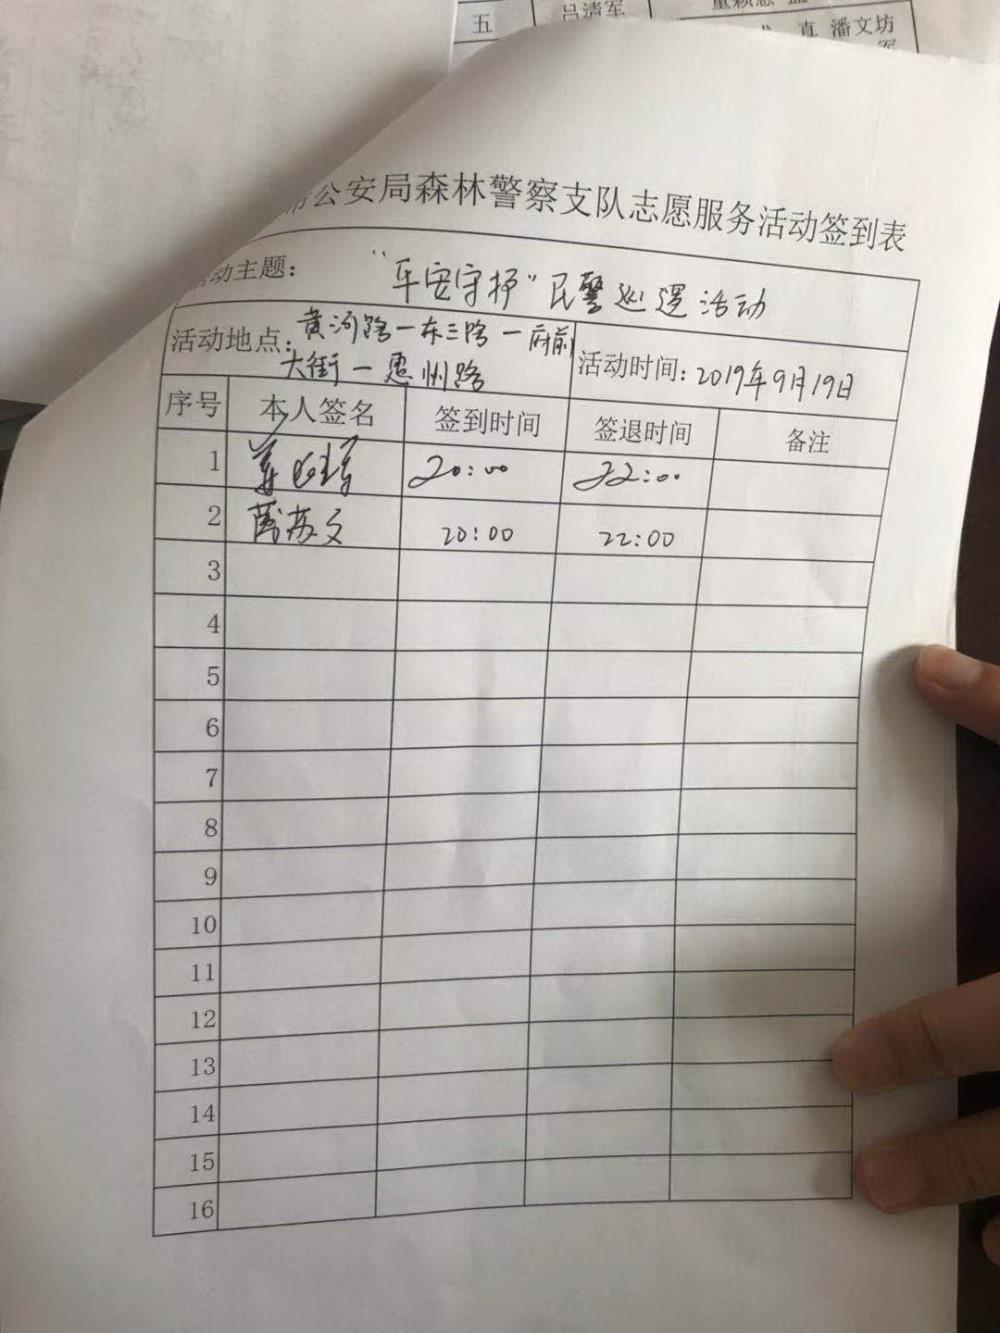 五 吕清军
真 潘文坊
公安局森林警察支队志愿服务活动签到表
动主题： “平安守护”民警巡逻活动
活动地点： 黄河路一东三路一府前
大街一惠州路
活动时间：2019年9月19日
序号 本人签名 签到时间 签退时间 备注
1 20:00 22:00
2 苏文 20:00 22:00
3
4
5
6
7
8
9
10
11
12
13
14
15
16